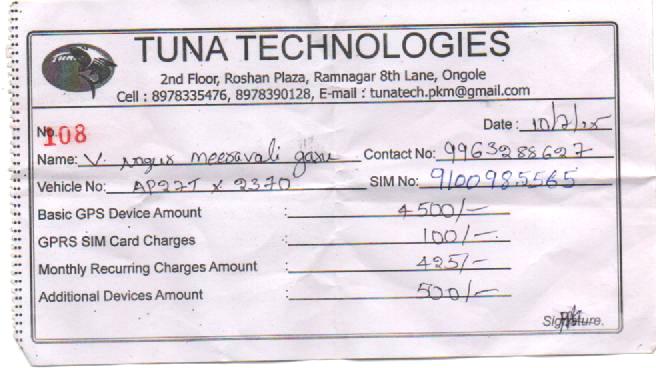 Tuna
TUNA TECHNOLOGIES
2nd Floor, Roshan Plaza, Ramnagar 8th Lane, Ongole
Cell : 8978335476, 8978390128, E-mail : tunatech.pkm@gmail.com
No. 108
Date : 10/7/25
Name: V. meeravali garu Contact No: 9963288627
Vehicle No: AP27T x 2370 SIM No: 9100985565
Basic GPS Device Amount : 4500/-
GPRS SIM Card Charges : 100/-
Monthly Recurring Charges Amount : 425/-
Additional Devices Amount : 500/-
Signature.